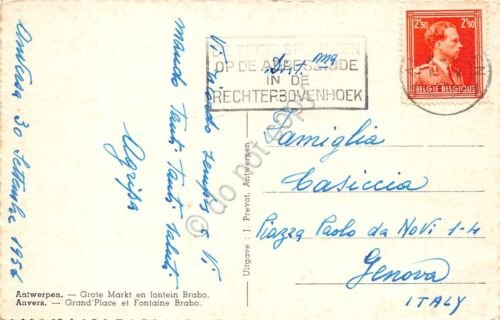 Anversa 30 Settembre 1956
Vi ricordo sempre e Vi
mando tanti tanti saluti
Agripa
Antwerpen. — Grote Markt en fontein Brabo.
Anvers. — Grand'Place et Fontaine Brabo.
Uitgave : J. Prevot, Antwerpen
OP DE ADRESZIJDE
IN DE
RECHTERBOVENHOEK
2F50 2F50
BELGIE-BELGIQUE
Famiglia
Casiccia
Piazza Paolo da Novi 1-4
Genova
ITALY
do not copy